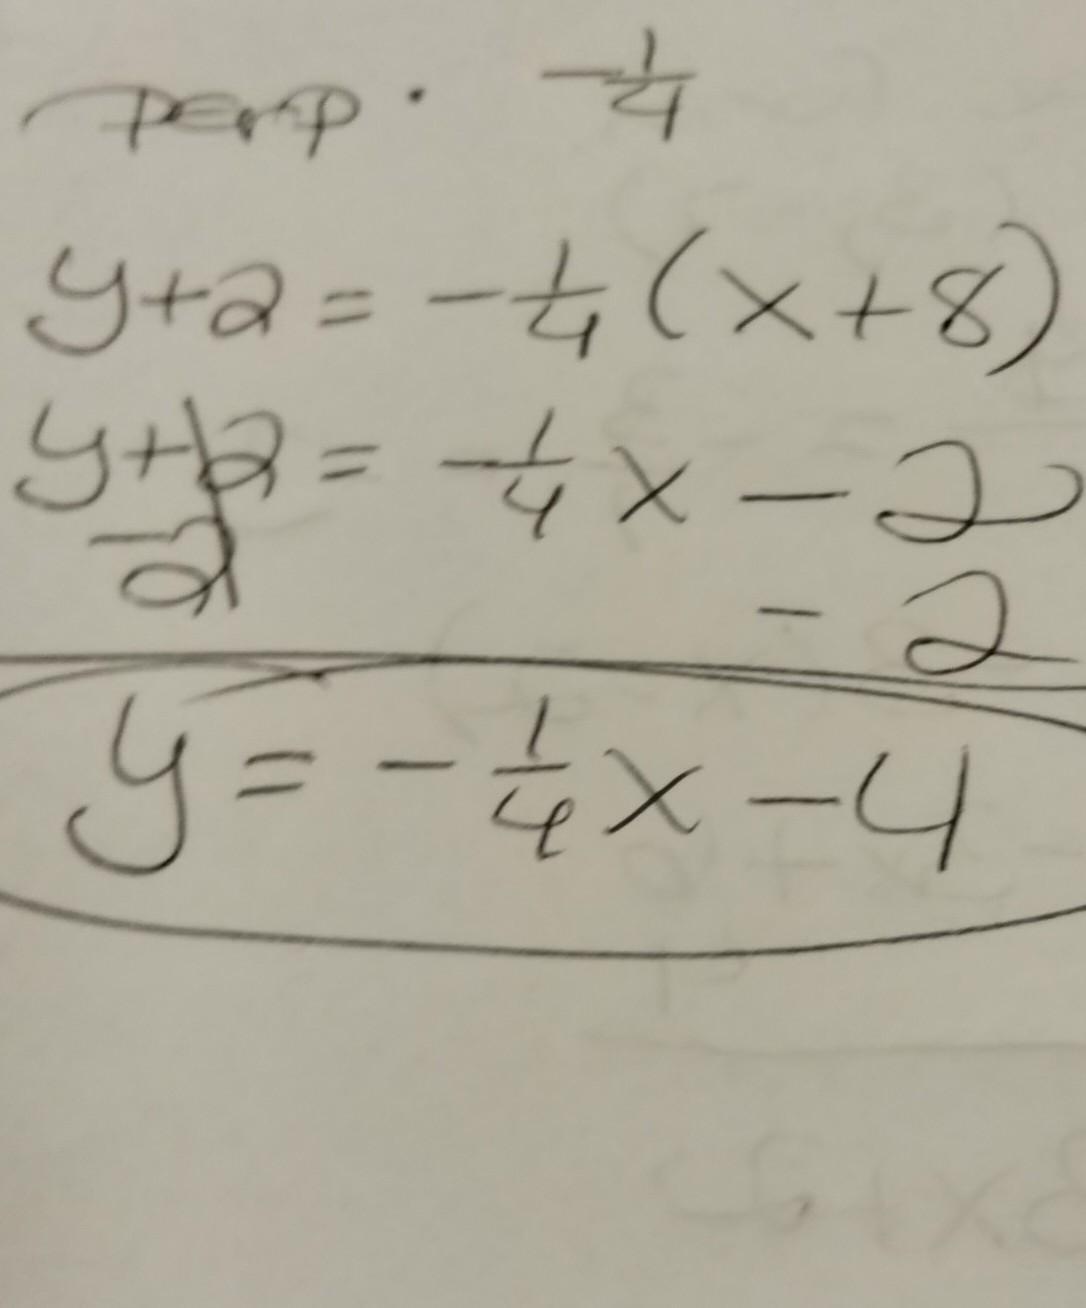 perp. -1/4
y+2 = -1/4(x+8)
y+2 = -1/4x - 2
-2 - 2
y = -1/4x - 4